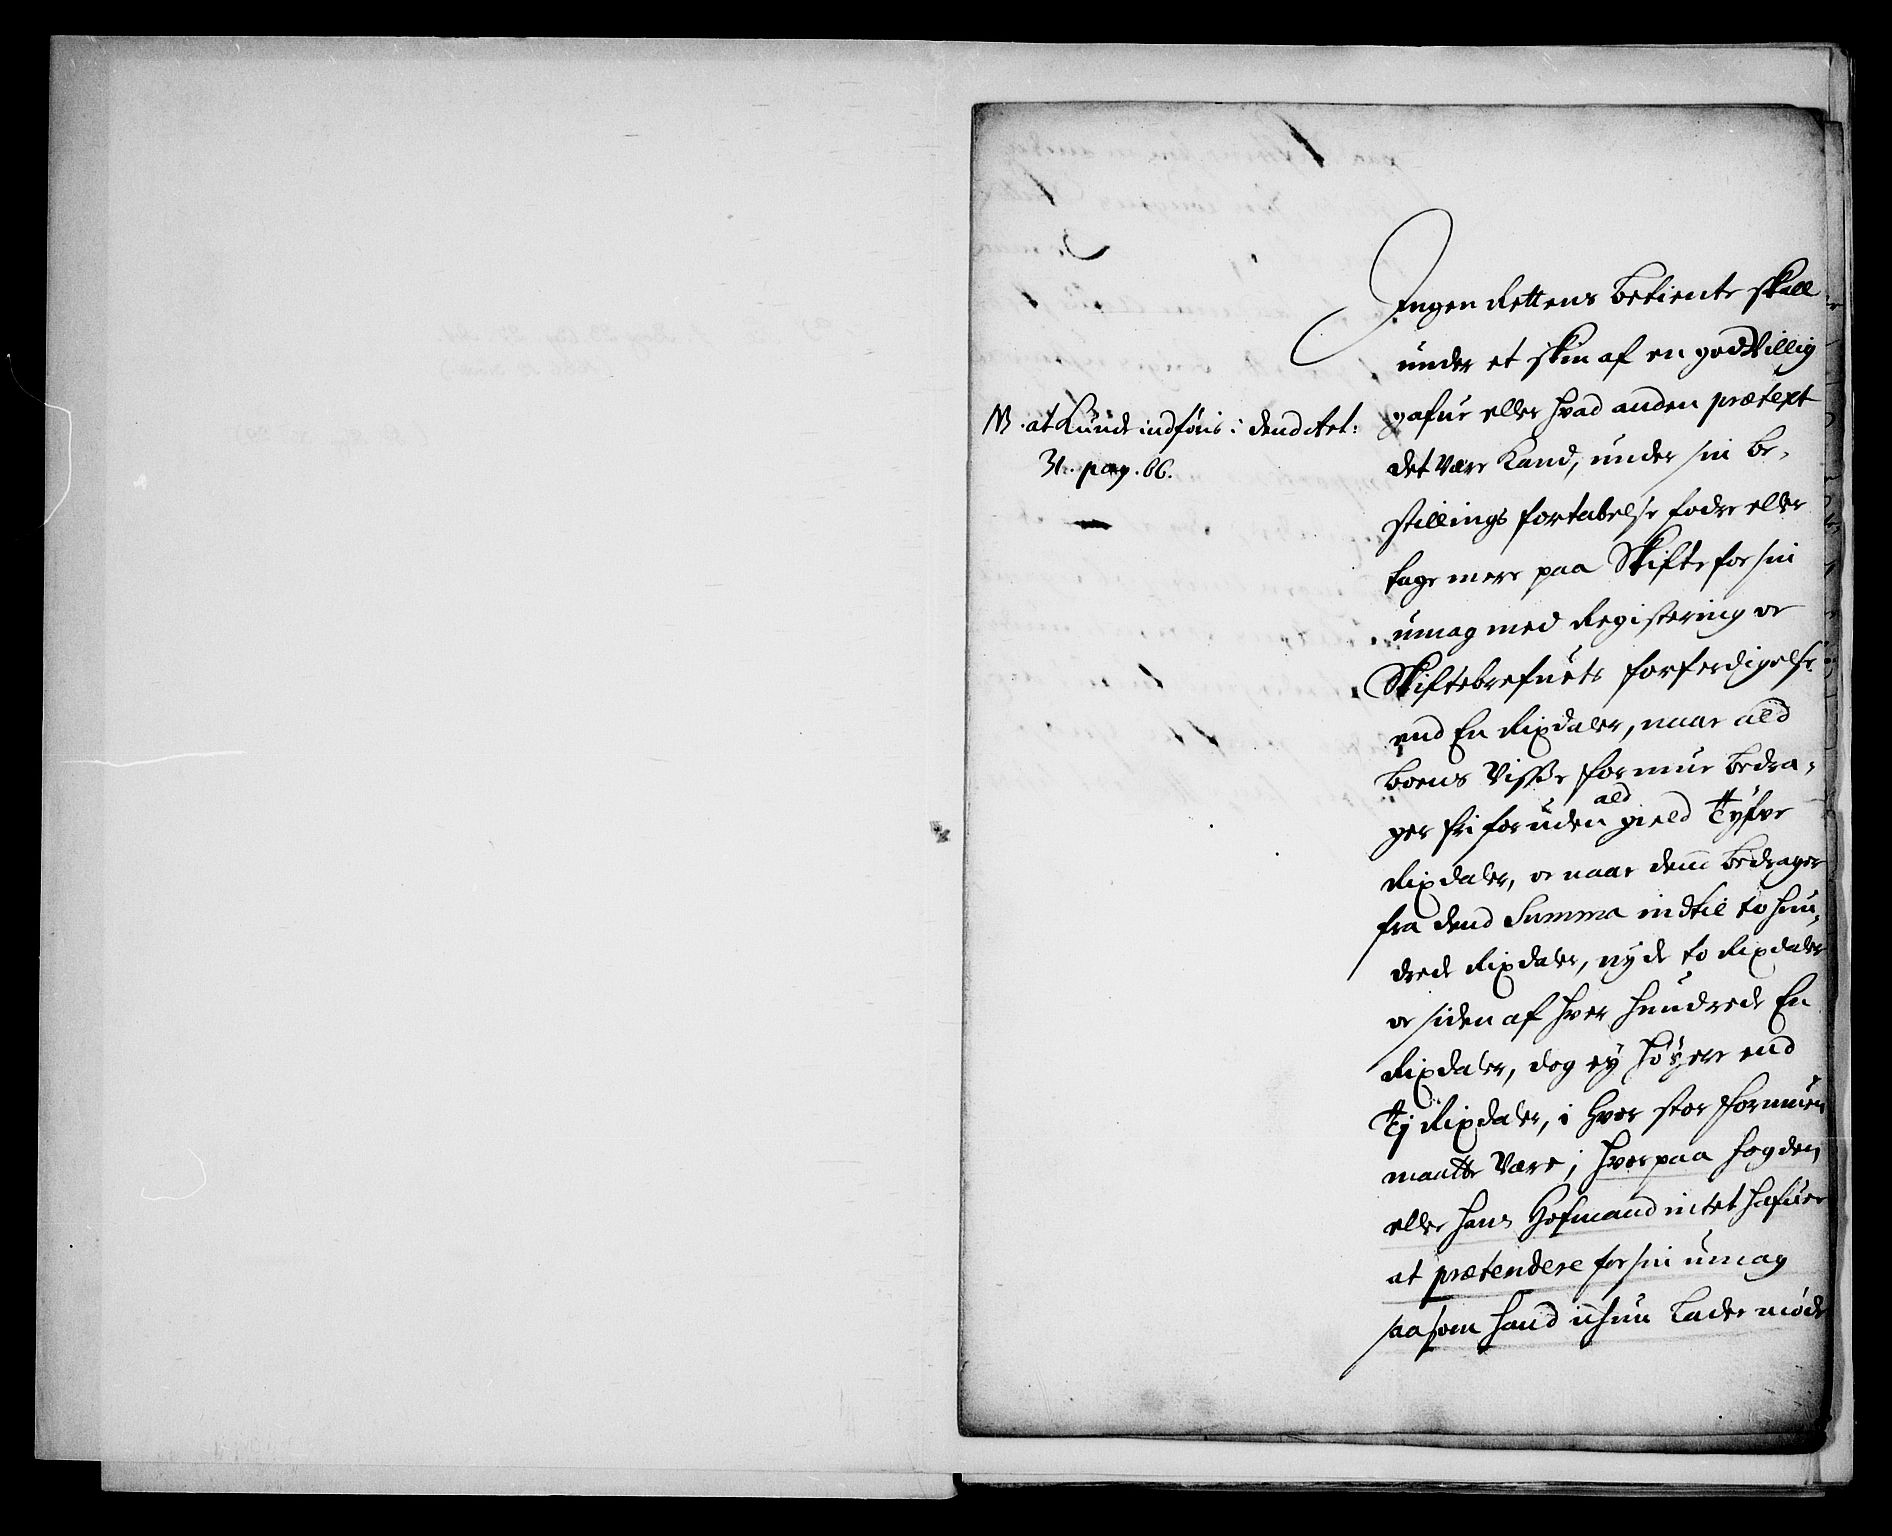 NB. at kunde indføris i dend Art:
31. pag. 66.
Ingen Rettens betiente skall
under et skin af en godvillig
gafue eller hvad anden prætext
det være kand, under sin be-
stillings fortabelse fodre eller
tage mere paa Skifte for sin
umag med Registering oc
Skiftebrefuets forferdigelse
end En Rixdaler, naar ald
boens visse formue bedra-
ger fri foruden ald gield Tyfve
Rixdaler, oc naar denn bedrager
fra dend Summa indtil to hun-
drede Rixdaler, nyde to Rixdaler
oc siden af hver hundrede En
Rixdaler, dog ey høyere end
Tj Rixdaler, i hvor stor formuen
maatte være; hvorpaa fogden
eller hans Hofmand intet hafuer
at prætendere for sin umag
saasom hand Lader møde